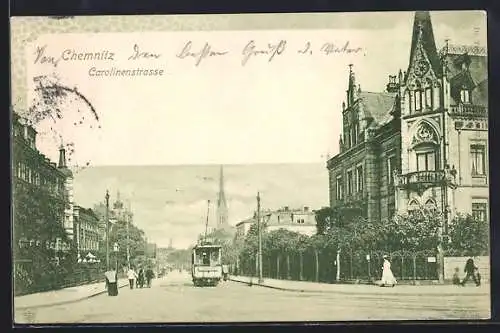 Von Chemnitz den besten Gruß d. Vater
Carolinenstrasse